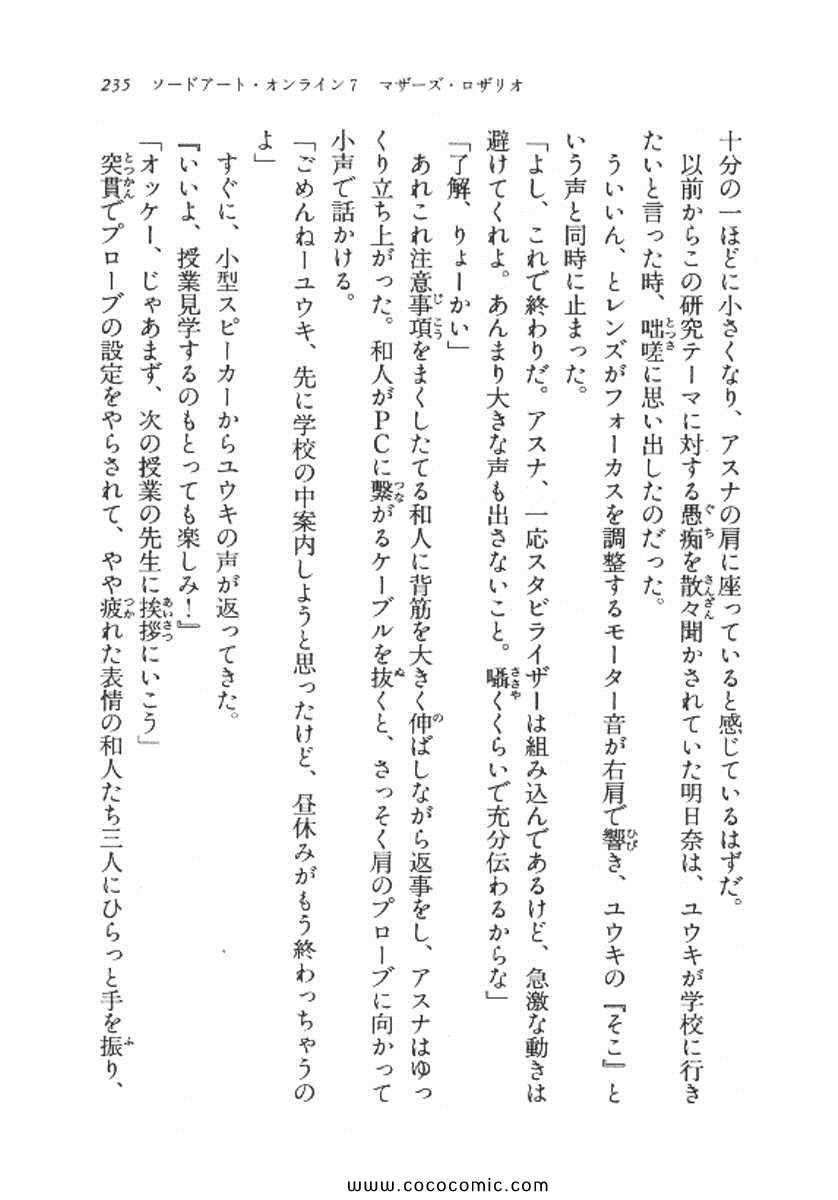 235 ソードアート・オンライン7 マザーズ・ロザリオ
十分の一ほどに小さくなり、アスナの肩に座っていると感じているはずだ。
以前からこの研究テーマに対する愚痴を散々聞かされていた明日奈は、ユウキが学校に行き
たいと言った時、咄嗟に思い出したのだった。
ういいん、とレンズがフォーカスを調整するモーター音が右肩で響き、ユウキの『そこ』と
いう声と同時に止まった。
「よし、これで終わりだ。アスナ、一応スタビライザーは組み込んであるけど、急激な動きは
避けてくれよ。あんまり大きな声も出さないこと。囁くくらいで充分伝わるからな」
「了解、りょーかい」
あれこれ注意事項をまくしたてる和人に背筋を大きく伸ばしながら返事をし、アスナはゆっ
くり立ち上がった。和人がPCに繋がるケーブルを抜くと、さっそく肩のプローブに向かって
小声で話かける。
「ごめんねーユウキ、先に学校の中案内しようと思ったけど、昼休みがもう終わっちゃうの
よ」
すぐに、小型スピーカーからユウキの声が返ってきた。
『いいよ、授業見学するのもとっても楽しみ!』
「オッケー、じゃあまず、次の授業の先生に挨拶にいこう」
突貫でプローブの設定をやらされて、やや疲れた表情の和人たち三人にひらっと手を振り、
www.cococomic.com